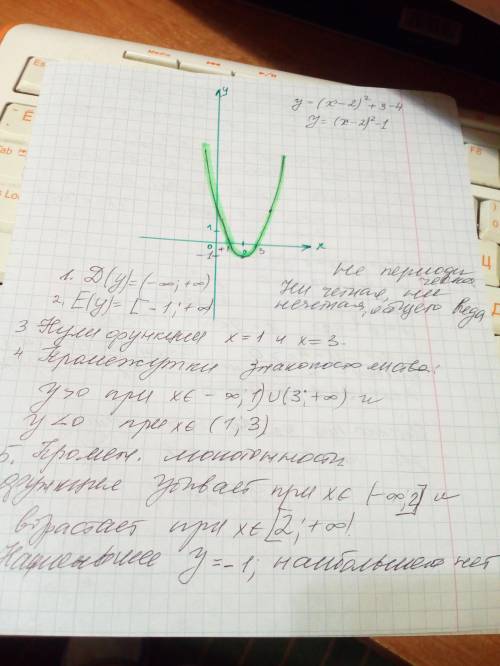 y=(x-2)²+3-4
y=(x-2)²-1
y
1
0
-1
+1
3
x
1. D(y)=(-∞;+∞)
2. E(y)=[-1;+∞
Не периоди
ческая
Ни четная, ни
нечетная, общего вида
3 Нули функции x=1 и x=3.
4 Промежутки знакопостоянства:
y>0 при x∈ -∞;1)∪(3;+∞) и
y<0 при x∈ (1;3)
5. Промеж. монотонности
функция убывает при x∈ (-∞;2] и
возрастает при x∈ [2;+∞)
Наименьшее y=-1; наибольшего нет